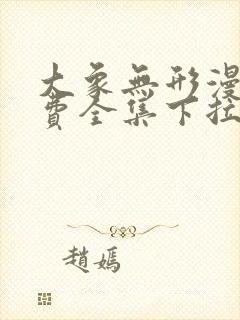 大象無形漫
費全集下拉
趙嫣